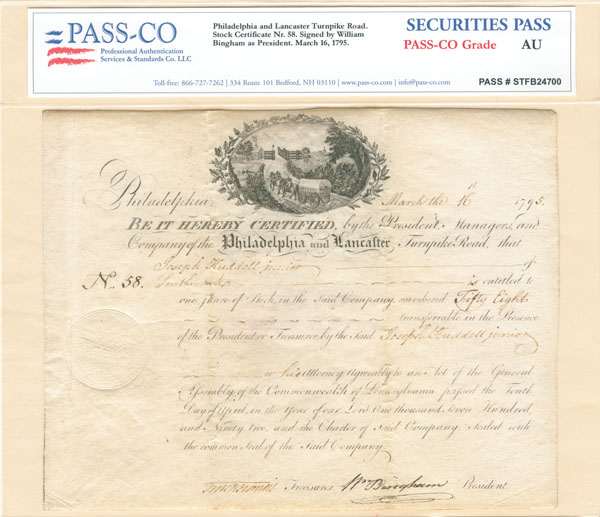 PASS-CO
Professional Authentication
Services & Standards Co. LLC
Philadelphia and Lancaster Turnpike Road.
Stock Certificate Nr. 58. Signed by William
Bingham as President. March 16, 1795.
SECURITIES PASS
PASS-CO Grade AU
Toll-free: 866-727-7262 | 334 Route 101 Bedford, NH 03110 | www.pass-co.com | info@pass-co.com
PASS # STFB24700
Philadelphia March the 16th 1795.
BE IT HEREBY CERTIFIED, by the President, Managers, and
Company of the Philadelphia and Lancaster Turnpike Road, that
Joseph junior of
No. 58. is entitled to
one Share of Stock, in the Said Company, numbered Fifty Eight
transferrable in the Presence
of the President or Treasurer by the Said Joseph junior
or his Attorney Agreeably to an Act of the General
Assembly of the Commonwealth of Pennsylvania passed the Tenth
Day of April, in the Year of our Lord One thousand Seven Hundred
and Ninety two and the Charter of Said Company. Sealed with
the common Seal of the Said Company.
Treasurer Wm Bingham President